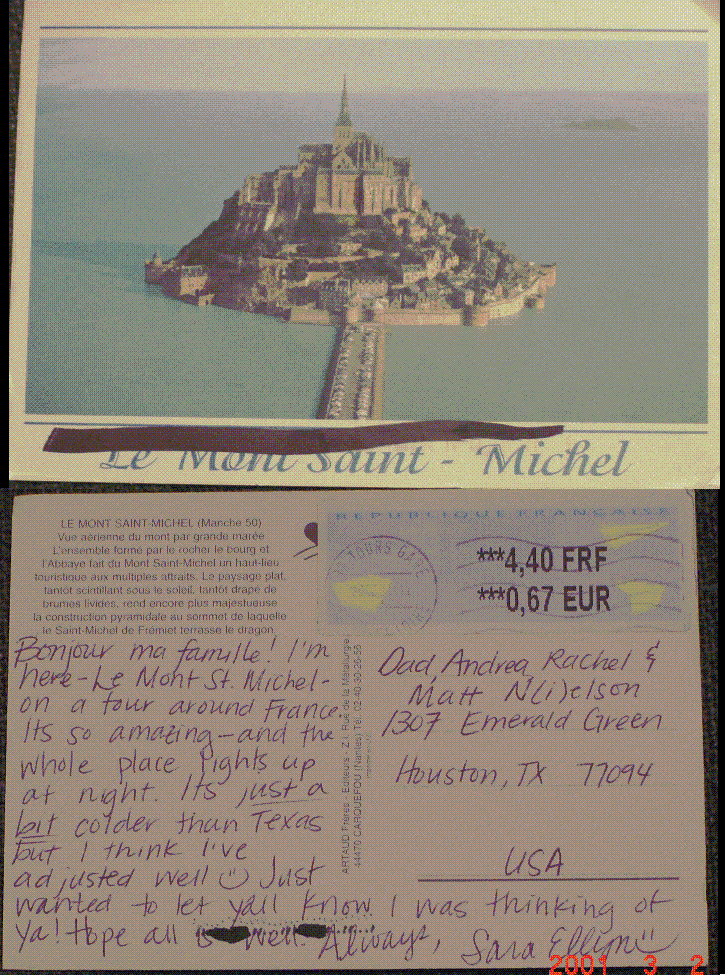 Le Mont Saint - Michel
LE MONT SAINT-MICHEL (Manche 50)
Vue aérienne du mont par grande marée
L'ensemble formé par le rocher le bourg et
l'Abbaye fait du Mont Saint-Michel un haut-lieu
touristique aux multiples attraits. Le paysage plat,
tantôt scintillant sous le soleil, tantôt drapé de
brumes livides, rend encore plus majestueuse
la construction pyramidale au sommet de laquelle
le Saint-Michel de Frémiet terrasse le dragon.
REPUBLIQUE FRANÇAISE
TOURS GARE
***4,40 FRF
***0,67 EUR
Bonjour ma famille! I'm
here-Le Mont St. Michel-
on a tour around France.
Its so amazing-and the
whole place lights up
at night. Its just a
bit colder than Texas
but I think I've
adjusted well Just
wanted to let yall know I was thinking of
ya! Hope all is well. Always, Sara Ellyn
ARTAUD Frères - Editeurs - Z.I. Rue de la Métallurgie
44470 CARQUEFOU (Nantes) Tél. 02-40-30-25-55
Dad, Andrea, Rachel &
Matt N(i)elson
1307 Emerald Green
Houston, TX 77094
USA
2001 3 2